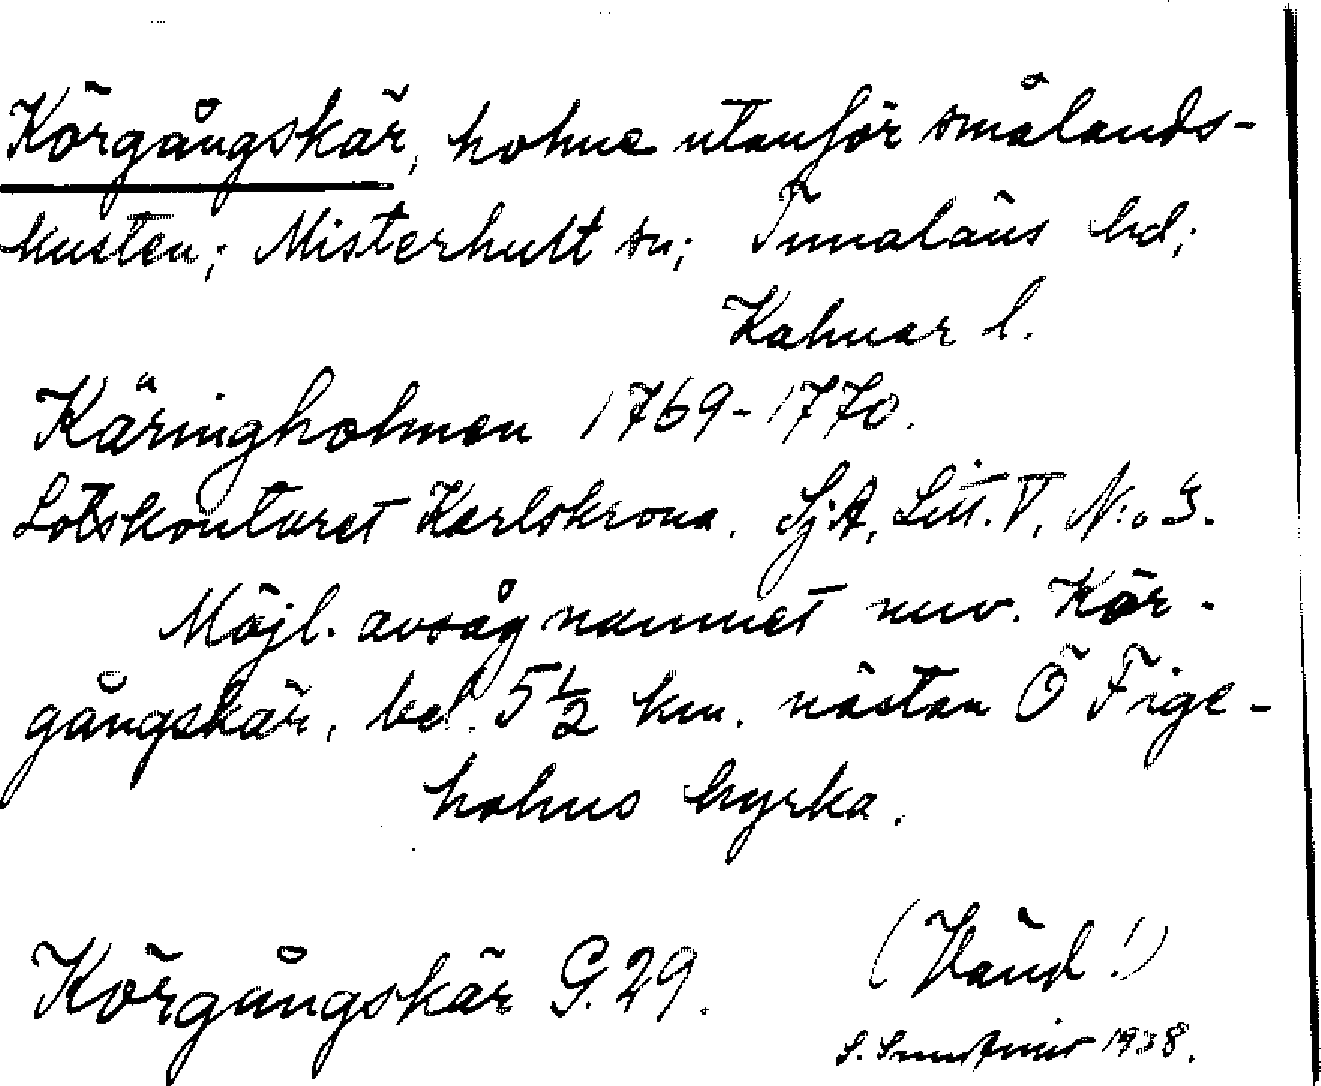 Körgångskär, holme utanför smålands-
kusten; Misterhult sn; Tunaläns hd;
Kalmar l.
Käringholmen 1769-1770.
Lotskontoret Karlskrona. SjA, Litt. T, N:o 3.
Möjl. avsåg namnet nuv. Kör-
gångskär, bel. 5 1/2 km. nästan Ö Fige-
holms kyrka.
Körgångskär G. 29.
(Vänd!)
S. 1938.